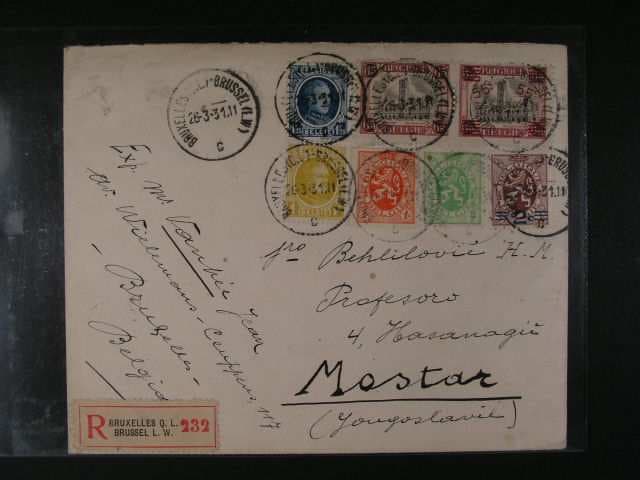 BRUXELLES (Q.L.)-BRUSSEL (L.W.)
26-3-31.11
C
BELGIQUE
BELGIQUE
26-3-31.11
C
Exp. Mr Vanhée Jean
av. Wielemans-Ceuppens, 117
- Bruxelles -
Belgia
pro Behlilović H. M
Profesoro
4, Hasanagić
Mostar
(Yougoslavie)
R BRUXELLES Q. L. 232
BRUSSEL L. W.